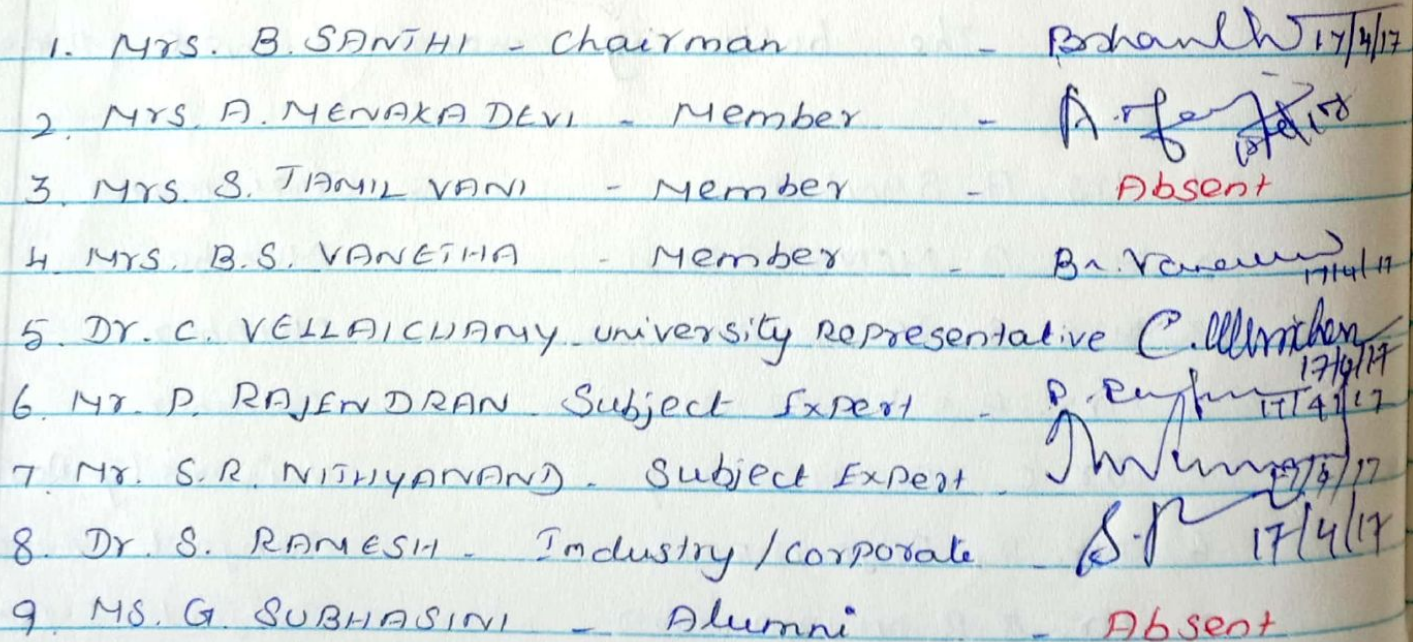 1. Mrs. B. SANTHI - Chairman - 17/4/17
2. Mrs. A. MENAKA DEVI - Member -
3. Mrs. S. TAMIL VANI - Member - Absent
4. Mrs. B.S. VANETHA - Member - 17/4/17
5. Dr. C. VELLAICHAMY - University Representative 17/4/17
6. Mr. P. RAJENDRAN - Subject Expert - 17/4/17
7. Mr. S.R. NITHYANAND - Subject Expert - 17/4/17
8. Dr. S. RAMESH - Industry / Corporate - 17/4/17
9. MS. G. SUBHASINI - Alumni - Absent